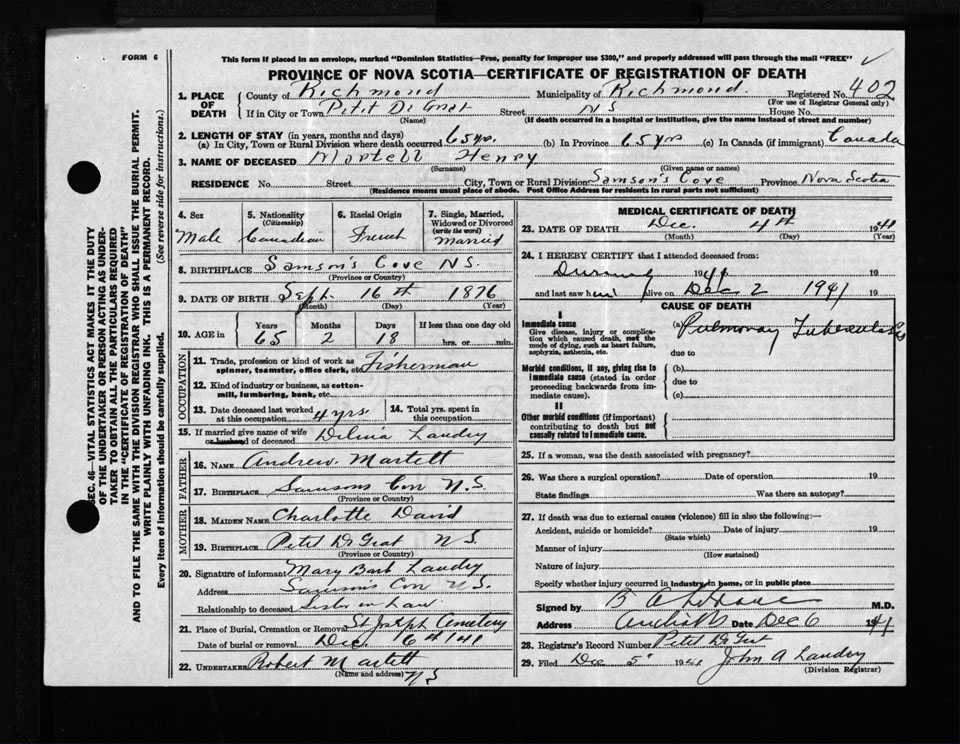 FORM 6
This form if placed in an envelope, marked "Dominion Statistics—Free, penalty for improper use $300," and properly addressed will pass through the mail "FREE"
PROVINCE OF NOVA SCOTIA—CERTIFICATE OF REGISTRATION OF DEATH
SEC. 46—VITAL STATISTICS ACT MAKES IT THE DUTY
OF THE UNDERTAKER OR PERSON ACTING AS UNDER-
TAKER TO OBTAIN ALL THE PARTICULARS REQUIRED
IN THE "CERTIFICATE OF REGISTRATION OF DEATH"
AND TO FILE THE SAME WITH THE DIVISION REGISTRAR WHO SHALL ISSUE THE BURIAL PERMIT.
WRITE PLAINLY WITH UNFADING INK. THIS IS A PERMANENT RECORD.
Every item of information should be carefully supplied. (See reverse side for instructions.)
1. PLACE OF DEATH County of Richmond Municipality of Richmond. Registered No. 402
(For use of Registrar General only)
If in City or Town Petit De Grat Street N S House No.
(Name) (If death occurred in a hospital or institution, give the name instead of street and number)
2. LENGTH OF STAY (in years, months and days)
(a) In City, Town or Rural Division where death occurred 65 yrs. (b) In Province 65 yrs (c) In Canada (if immigrant) Canada
3. NAME OF DECEASED Martell Henry
(Surname) (Given name or names)
RESIDENCE No. Street City, Town or Rural Division Samson's Cove Province Nova Scotia
(Residence means usual place of abode. Post Office Address for residents in rural parts not sufficient)
4. Sex Male
5. Nationality (Citizenship) Canadian
6. Racial Origin French
7. Single, Married, Widowed or Divorced (write the word) Married
8. BIRTHPLACE Samson's Cove N S.
(Province or Country)
9. DATE OF BIRTH Sept. 16th 1876
(Month) (Day) (Year)
10. AGE in Years 65 Months 2 Days 18 If less than one day old hrs. or min.
OCCUPATION
11. Trade, profession or kind of work as spinner, teamster, office clerk, etc. Fisherman
12. Kind of industry or business, as cotton-mill, lumbering, bank, etc.
13. Date deceased last worked at this occupation 4 yrs
14. Total yrs. spent in this occupation
15. If married give name of wife or husband of deceased Landry
FATHER
16. NAME Andrew Martell
17. BIRTHPLACE Samsons Cove N S
(Province or Country)
MOTHER
18. MAIDEN NAME Charlotte David
19. BIRTHPLACE Petit De Grat N S
(Province or Country)
20. Signature of informant Mary Barb Landry
Address Samson's Cove N S.
Relationship to deceased Sister in Law
21. Place of Burial, Cremation or Removal St Joseph Cemetery
Date of burial or removal Dec. 6th 1941
22. UNDERTAKER Robert Martell
(Name and address) N S
MEDICAL CERTIFICATE OF DEATH
23. DATE OF DEATH Dec. 4th 1941
(Month) (Day) (Year)
24. I HEREBY CERTIFY that I attended deceased from:
During 1941 19
and last saw him alive on Dec 2 1941 19
CAUSE OF DEATH
I
Immediate cause
Give disease, injury or complication which caused death, not the mode of dying, such as heart failure, asphyxia, asthenia, etc.
(a) Pulmonary Tuberculosis
due to
Morbid conditions, if any, giving rise to immediate cause (stated in order proceeding backwards from immediate cause).
(b)
due to
(c)
II
Other morbid conditions (if important) contributing to death but not causally related to immediate cause.
25. If a woman, was the death associated with pregnancy?
26. Was there a surgical operation? Date of operation 19
State findings Was there an autopsy?
27. If death was due to external causes (violence) fill in also the following:—
Accident, suicide or homicide? Date of injury 19
(State which)
Manner of injury
(How sustained)
Nature of injury
Specify whether injury occurred in industry, in home, or in public place
Signed by M.D.
Address Arichat Date Dec 6 1941
28. Registrar's Record Number Petit De Grat
29. Filed Dec 5 1941 John A Landry
(Division Registrar)